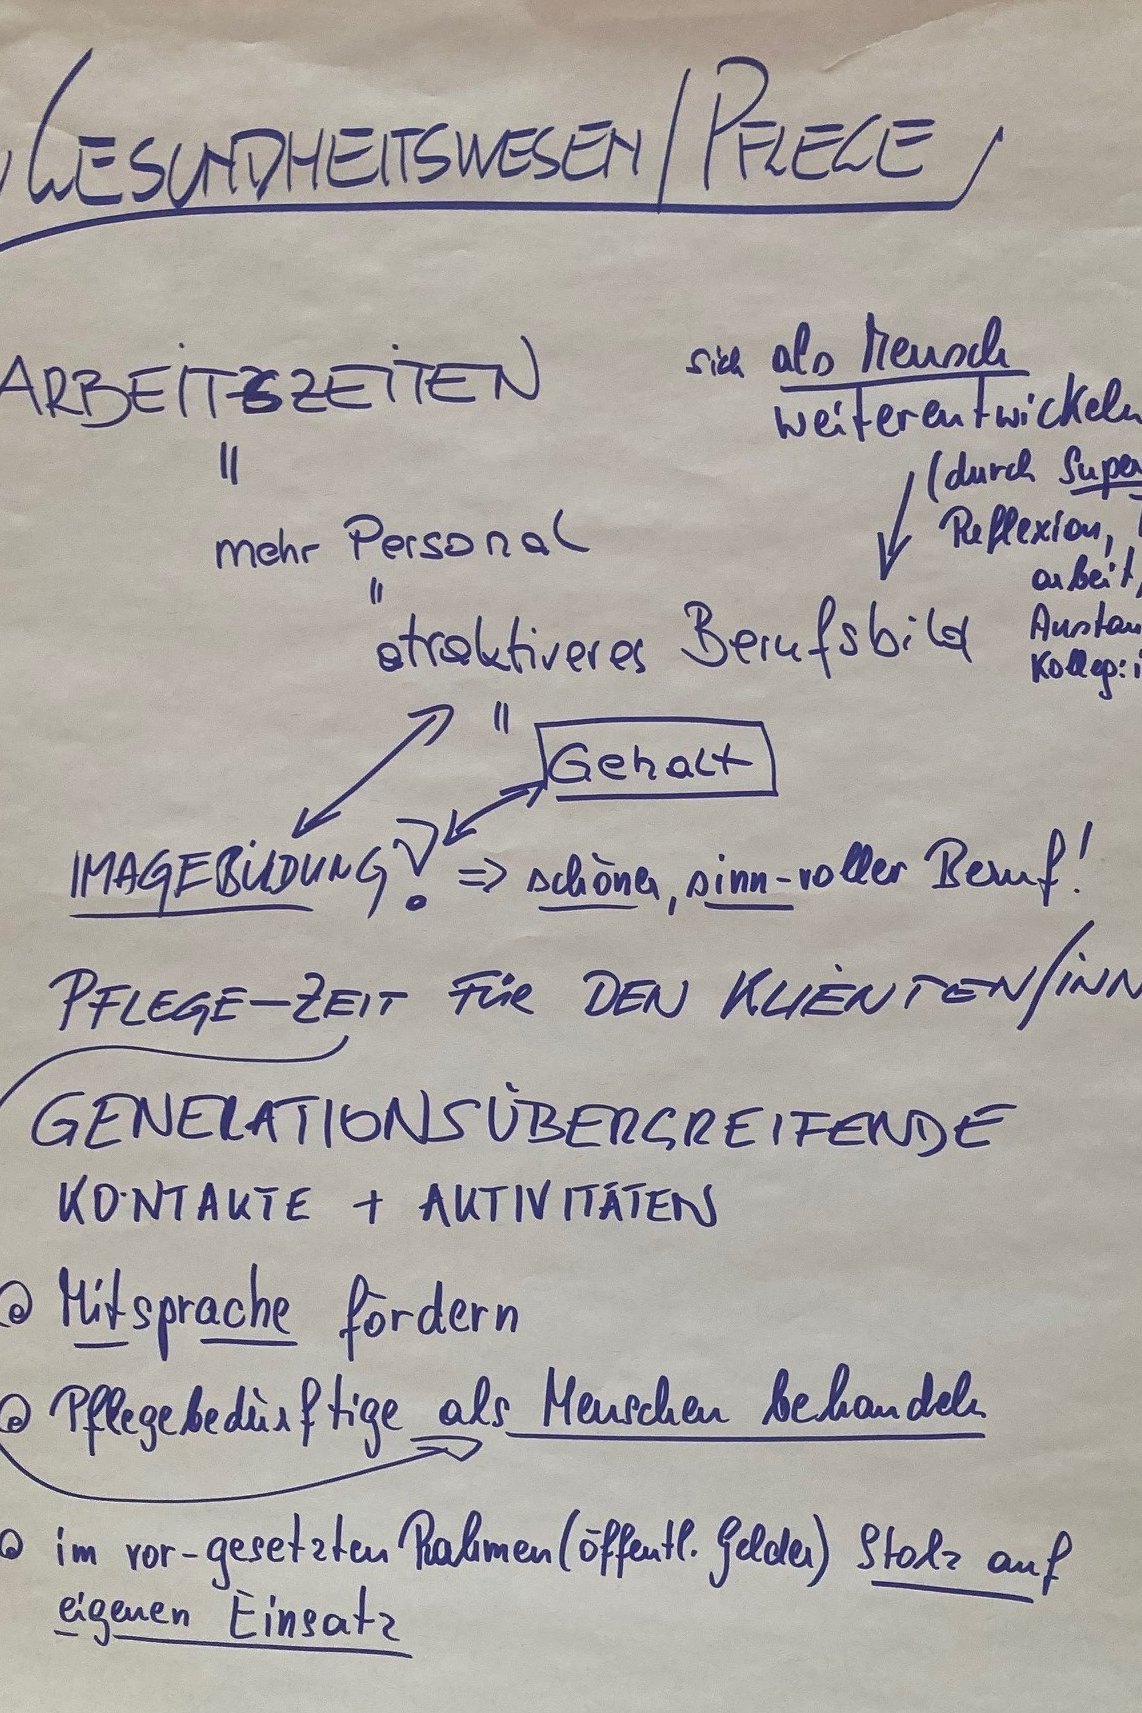 GESUNDHEITSWESEN/PFLEGE
ARBEITSZEITEN
"
mehr Personal
"
atraktiveres Berufsbild
"
Gehalt
sich als Mensch
weiterentwickeln
(durch Super
Reflexion,
arbeit,
Austau
Kolleg:i
IMAGEBILDUNG? => schöner, sinn-voller Beruf!
PFLEGE-ZEIT FÜR DEN KLIENTEN/INN
GENERATIONSÜBERGREIFENDE
KONTAKTE + AKTIVITÄTEN
Mitsprache fördern
Pflegebedürftige als Menschen behandeln
im vor-gesetzten Rahmen (öffentl. Gelder) Stolz auf
eigenen Einsatz